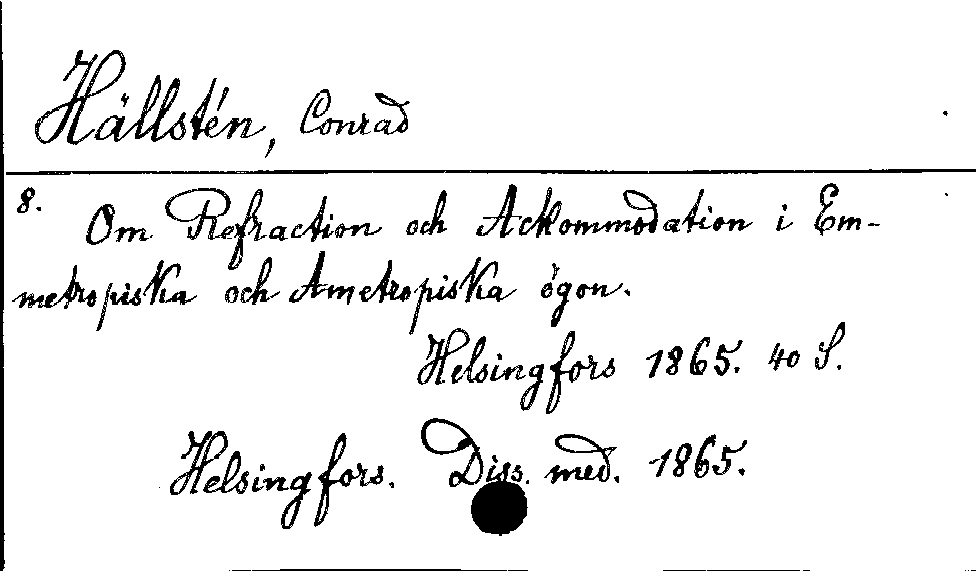 Hällstén, Conrad
8.
Om Refraction och Ackommodation i Em-
metropiska och Ametropiska ögon.
Helsingfors 1865. 40 S.
Helsingfors. Diss. med. 1865.